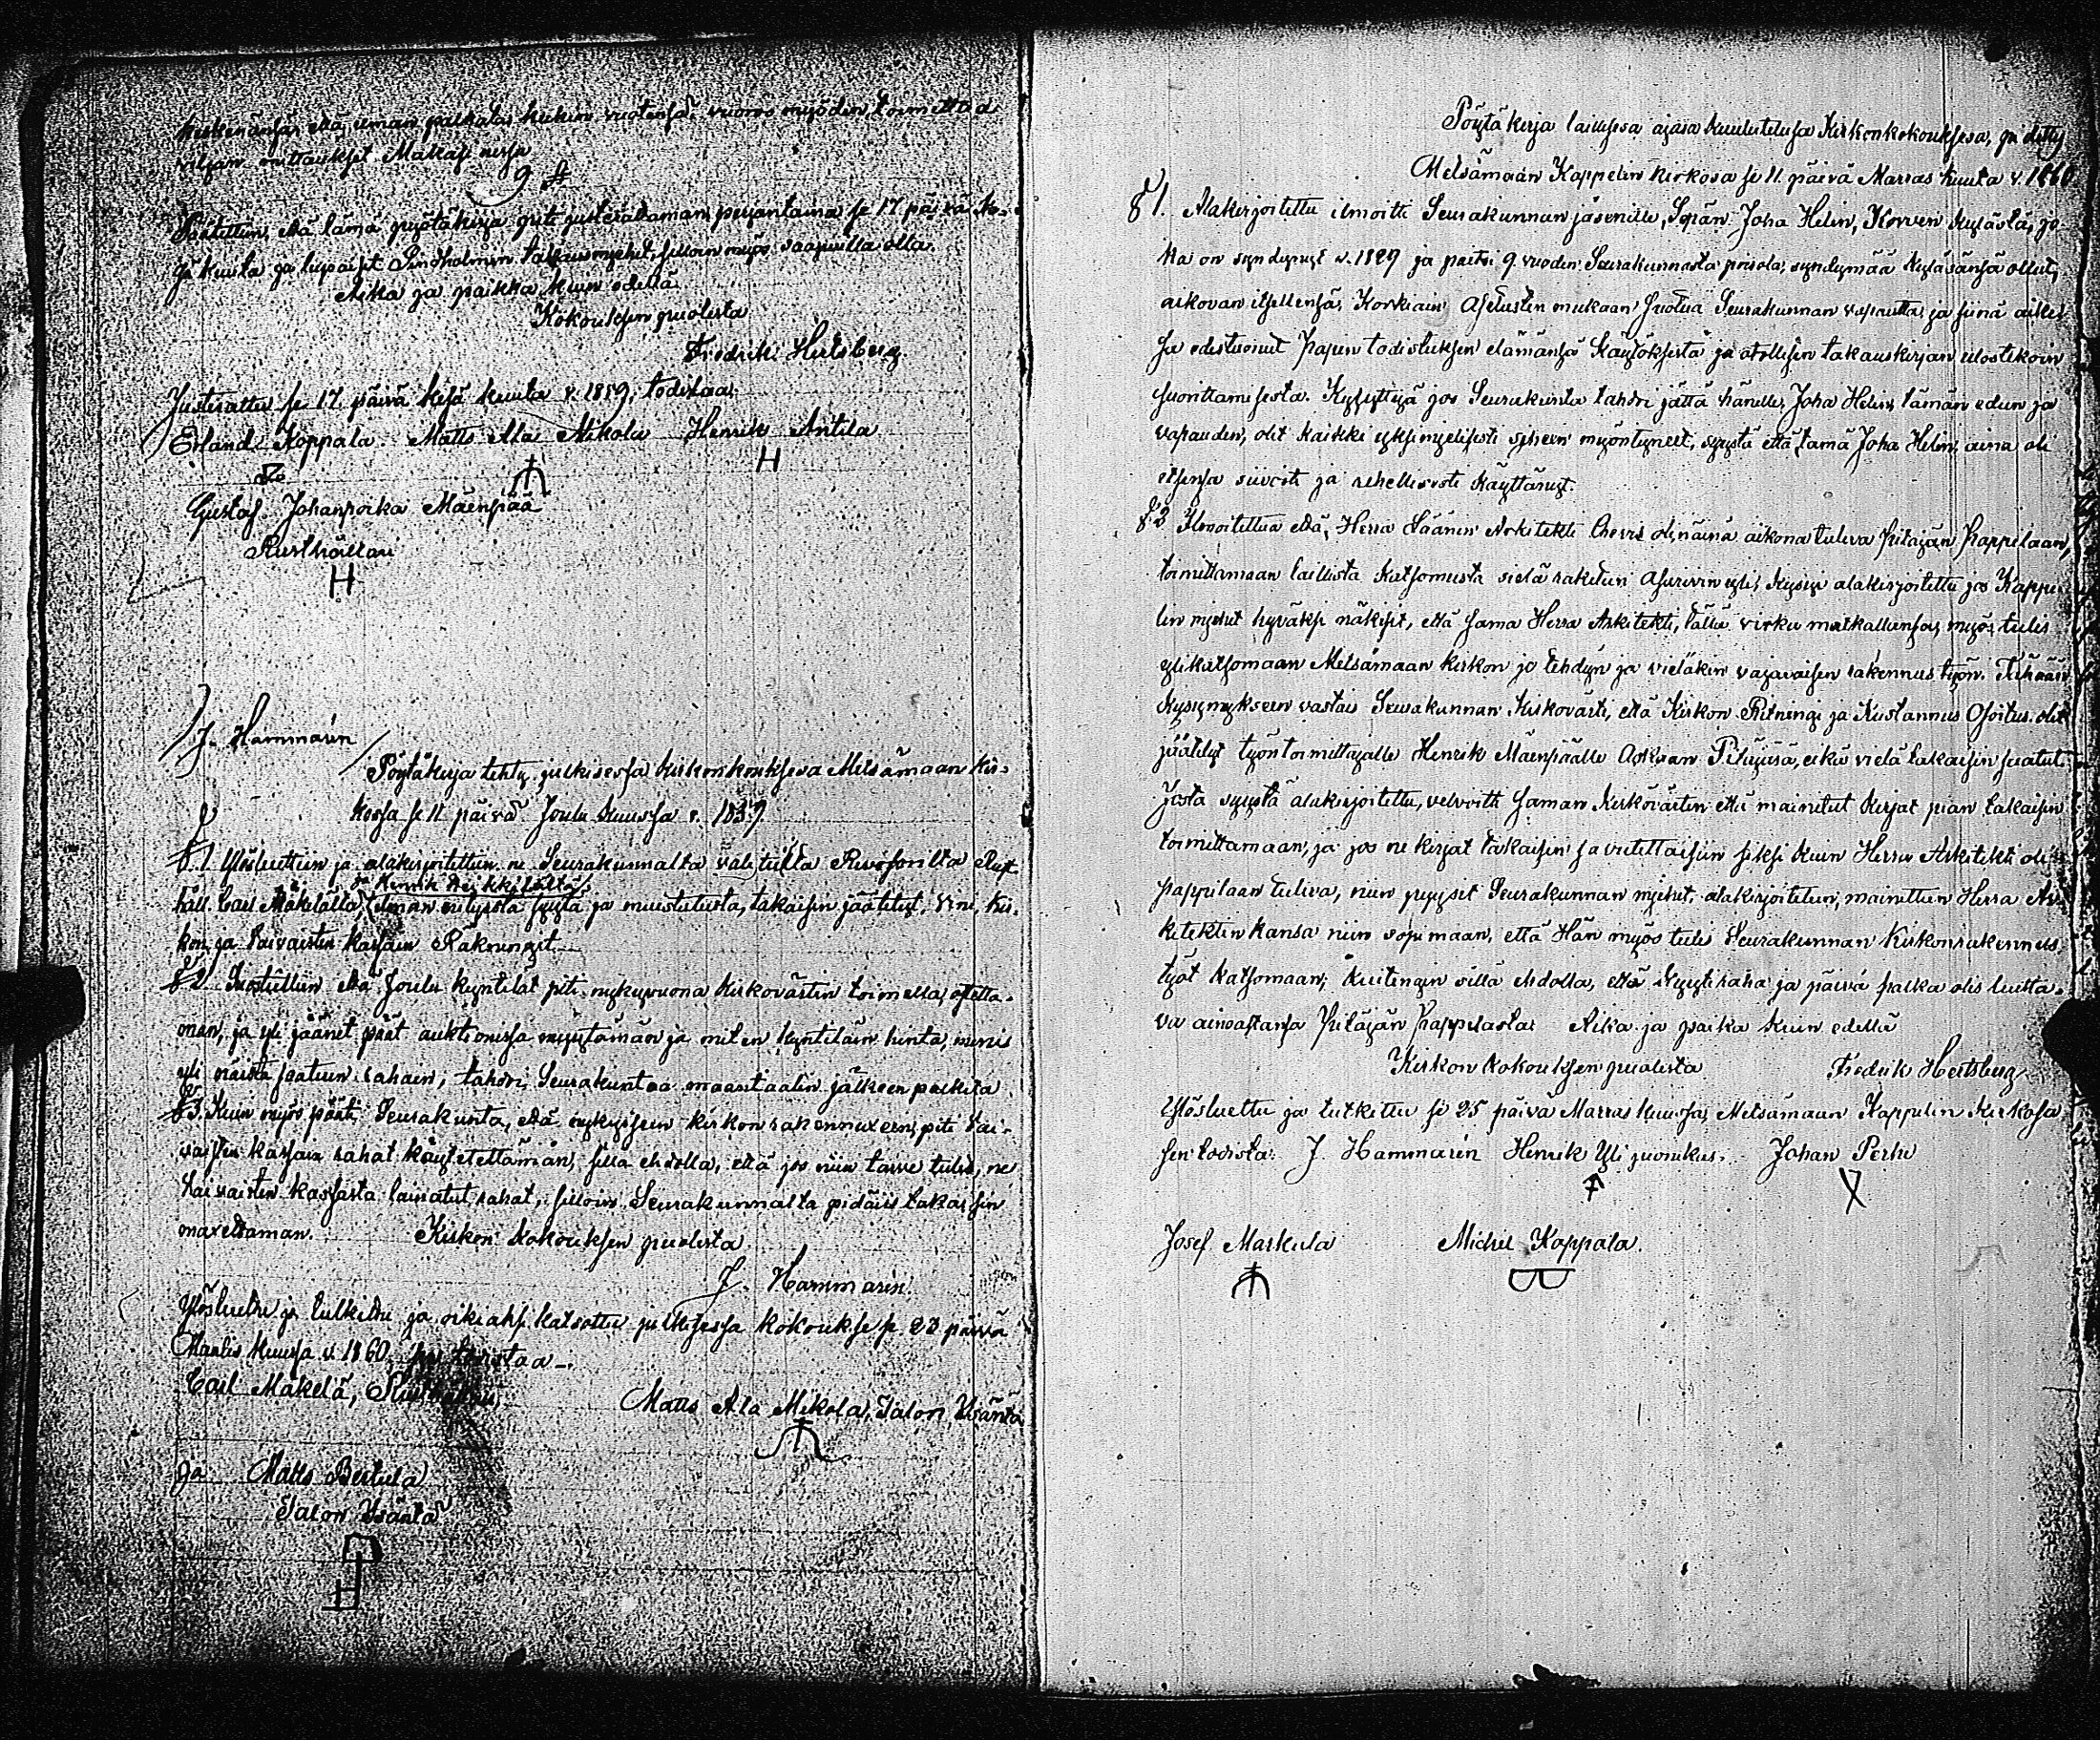 keskenänsä, että ilman palkata kukin vuotensa vuoron myöden toimittaa
viljan mittaukset Makasinissa
9 §
Päätettiin, että tämä pyötäkirja piti justerattaman perjantaina se 17 päivä Ke-
sä kuuta ja lupaisit Lindholmin takausmiehet, silloin myös saapuilla olla.
Aika ja paikka kuin edellä
Kokouksen puolesta
Fredrik Hertsberg
Justerattu se 17 päivä Kesä kuuta v. 1859, todistaa:
Erland Koppala Matts Ala Mikola Henrik Antila
Gustaf Johanpoika Mäenpää
Rusthållari
J. Hammarén
Pöytäkirja tehty julkisessa kirkonkouksesa Metsämaan kir-
kossa se 11 päivä Joulu kuussa v. 1859.
§ 1. Ylösluettiin ja alakirjoitettiin ne Seurakunnalta välitulla Revisorilta Rust
ja Henrik Heikkilältä,
håll. Carl Mäkelältä, ilman erityistä syytä ja muistutusta, takaisin jäätetyt, Viina, Kir-
kon, ja Vaivaisten kassain Räkningit.
§ 2. Suostuttiin että Joulu kyntilät piti nykyvuona kirkovärtin toimella, ostetta-
man, ja yli jäänet päät auktionissa myytämän ja miten kyntiläin hinta, menis
yli näistä saatuun rahain, tahdoi Seurakuntaa maantaalin jälkeen palkita
§ 3. Kuin myös päätti Seurakunta, että nykyiseen kirkon rakennuxeen, piti Vai-
vaisten kassain rahat käytetettämän, sillä ehdolla, että jos niin tarve tulis, ne
Vaivaisten kassasta lainatut rahat, silloin Seurakunnalta pidäis takaisin
maxettaman. Kirkon kokouksen puolesta
J. Hammarén.
Ylösluettu ja tutkittu ja oikiaksi katsottu julkisessa kokoukse se 23 päivä
Maalis kuussa v. 1860,
Carl Mäkelä,
Matts Ala Mikola, Talon Isäntä
ja Matts Bertula
Talon Isäntä
Pöytäkirja laillisesa ajasa kuulutelusa Kirkonkokouksesa, pidetty
Metsämaan Kappelin kirkosa se 11. päivä Marras kuuta v. 1860
§ 1. Alakirjoitettu ilmoitti Seurakunnan jäsenille, Sepän Joha Helin, Korven kylästä, jo-
ka on syndynyt v. 1829 ja paitsi 9 vuoden Seurakunnasta poisola, syndymää kyläsänsä ollut,
aikovan itsellensä, Korkiain Asetusten mukaan suolia Seurakunnan vapautta, ja siinä aikei-
sa edestuonut Papin todistuksen elämänsä käytöksestä ja atollisen takauskirjan ulostekoin
suorittamisesta. Kysyttyä jos Seurakunta tahdoi jättä hänelle, Joha Helin, tämän edun ja
vapauden, olit kaikki yksimielisesti siheen myöntyneet, syystä että tämä Joha Helin, aina oli
itsensä siivosti ja rehellisesti käyttänyt.
§ 2 Ilmoitettua että, Herra Läänin Arkitekti Chevis oli, näinä aikona tuleva Pitäjän Pappilaan,
toimittamaan laillista katsomusta sielä raketun Asuvin yli, kysyi alakirjoitettu jos Kappe-
lin miehet hyväksi näkisit, että sama Herra Arkitekti, tällä virka matkallansa, myös tulis
ylikatsomaan Metsämaan Kirkon jo tehdyn ja vieläkin vajavaisen rakennus työn. Tähään
kysymykseen vastais Seurakunnan Kirkovärti, että Kirkon Ritningi ja Kustannus Osoitus olit
jäätetyt työn toimittajalle Henrik Mäenpäälle Askaan Pitäjäsä, eikä vielä takaisin saatut.
Josta syystä alakirjoitettu, velvoitti saman Kirkovärtin että mainitut kirjat pian takaisin
toimittamaan, ja jos ne kirjat takaisin saavutettaisiin siksi kuin Herra Arkitekti oli
pappilaan tuleva, niin pyysit Seurakunnan miehet, alakirjoitetun, mainittun Herra Ar-
kitektin kansa niin sopimaan, että Hän myös tulis Seurakunnan Kirkonrakennus
työt katsomaan; kuitengin sillä ehdolla, että kyytiraha ja päivä palka olis luetta-
va ainoastansa Pitäjän Pappilasta. Aika ja paika kuin edellä
Kirkon kokouksen puolesta Fredrik Hertsberg
Ylösluettu ja tutkittu se 25 päivä Marras kuussa, Metsämaan Kappelin kirkosa
sen todista: J. Hammarén Henrik Yli juonikus, Johan Perho
Josef Markula Michel Kappala.